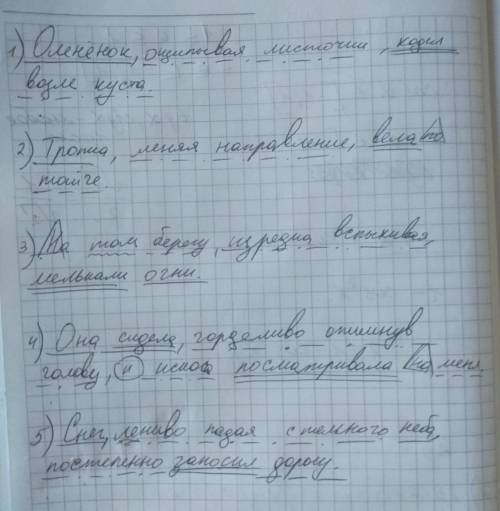 1) Оленёнок, ощипывая листочки, ходил
возле куста.
2) Тропка, меняя направление, вела по
тайге.
3) На том берегу, изредка вспыхивая,
мелькали огни.
4) Она сидела, горделиво откинув
голову, и искоса посматривала на меня.
5) Снег, лениво падая с темного неба,
постепенно заносил дорогу.